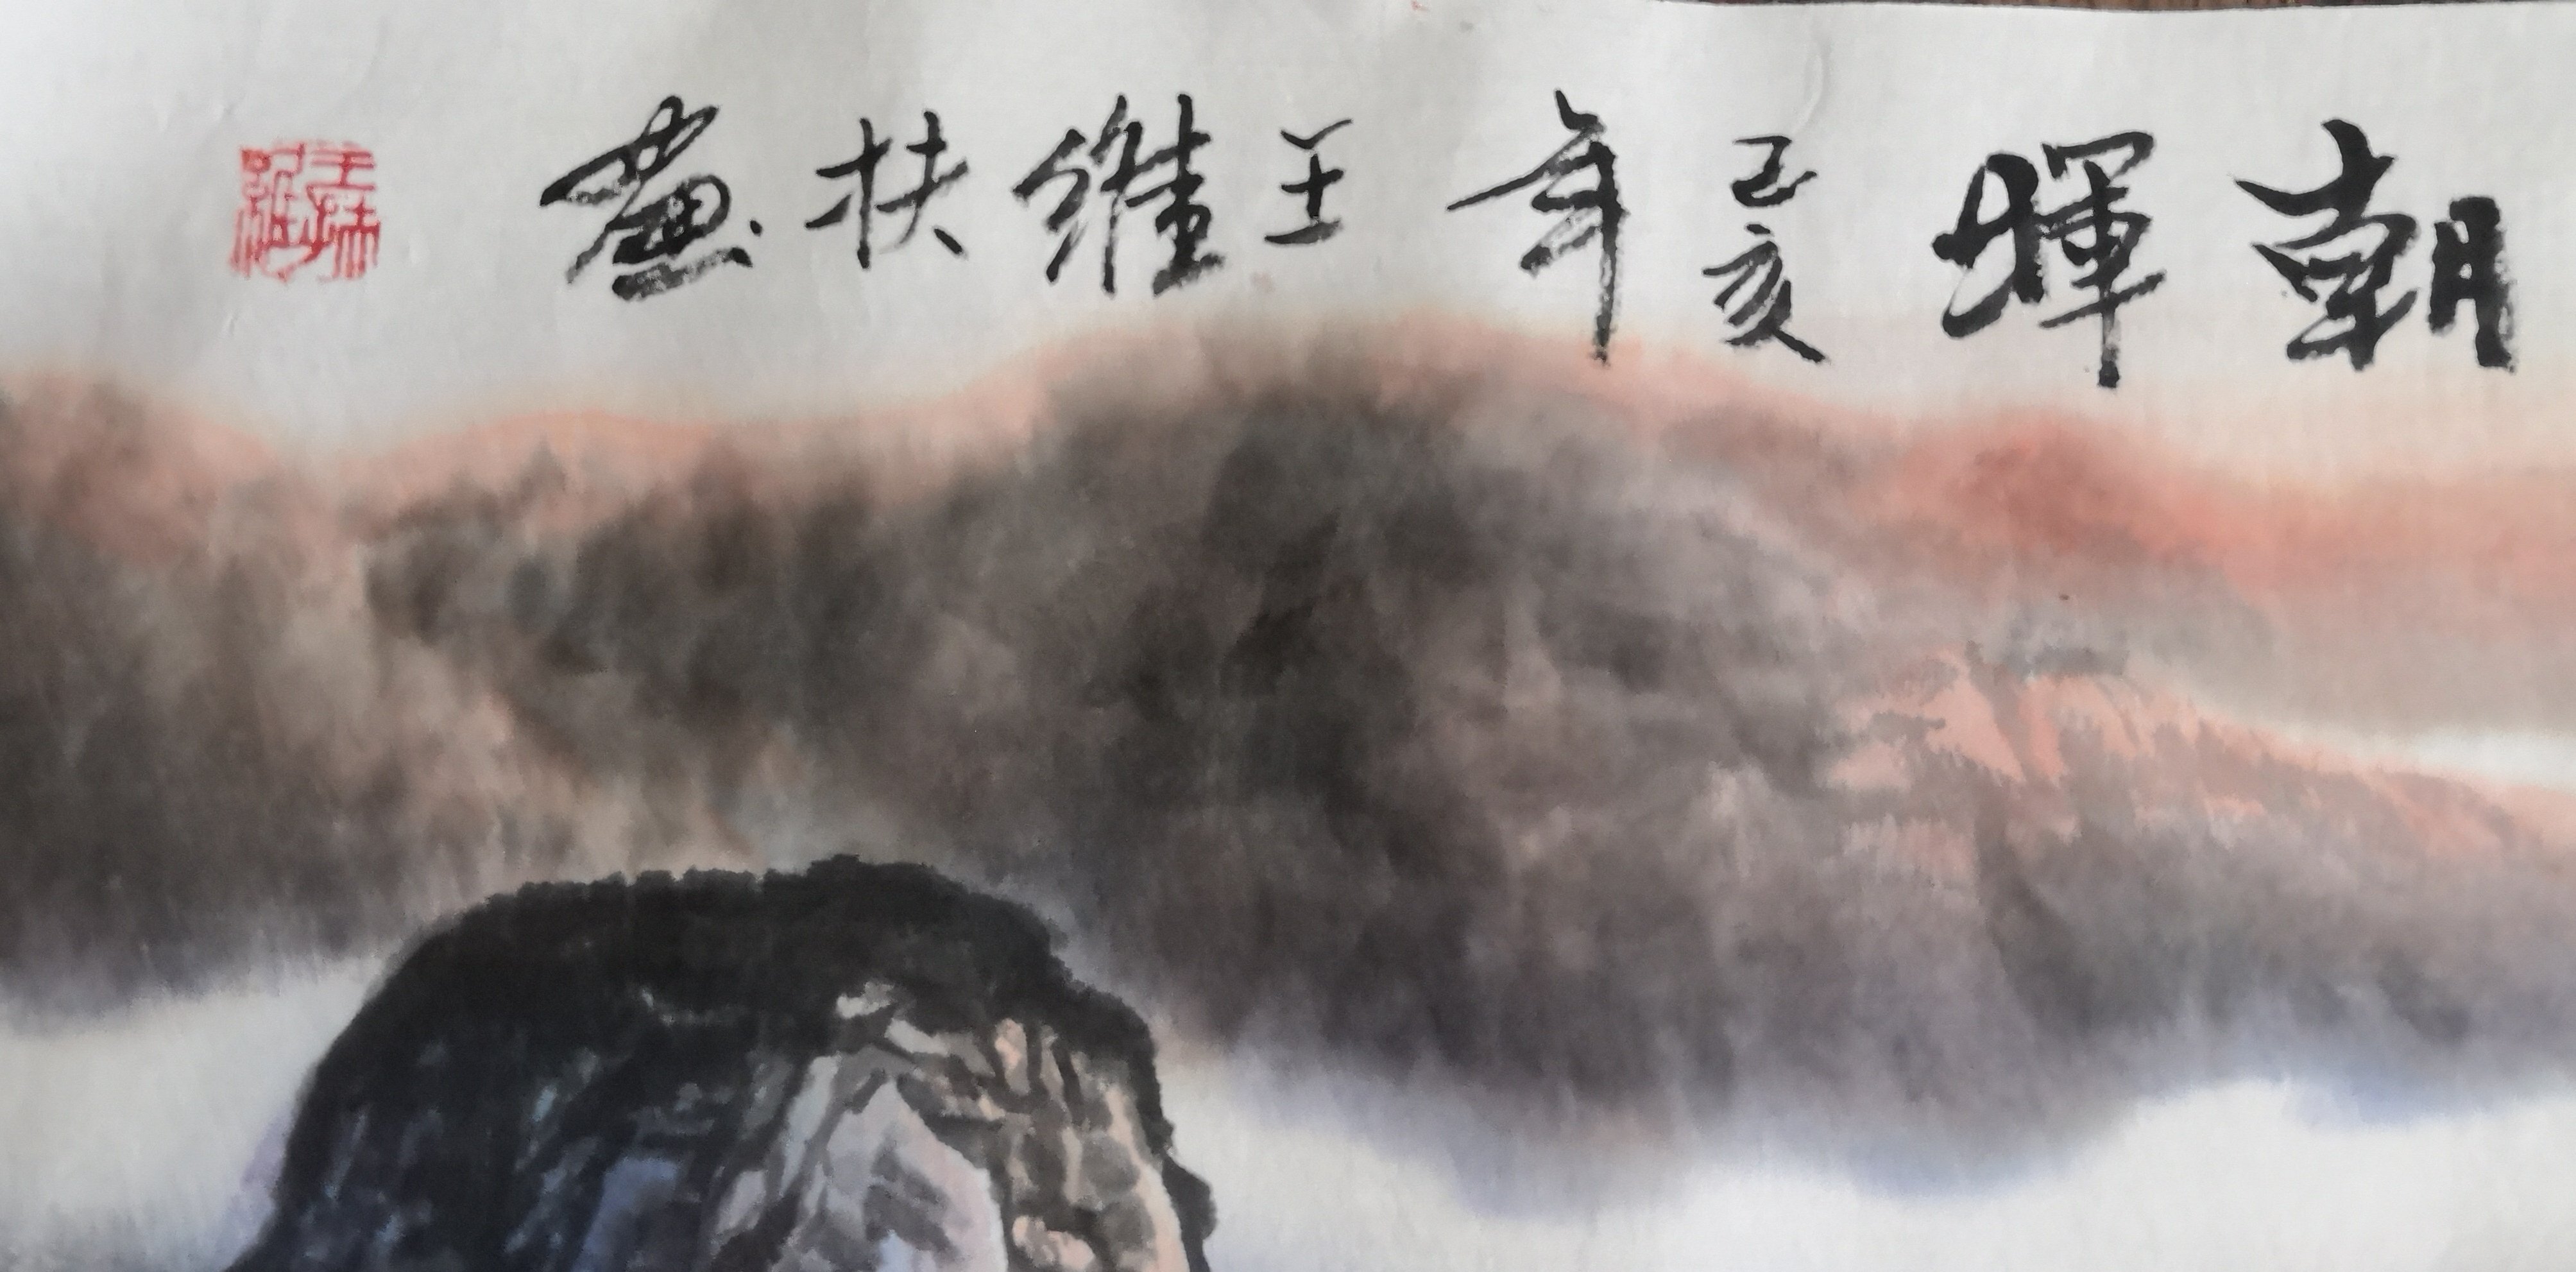 朝輝 己亥年 王維扶畫